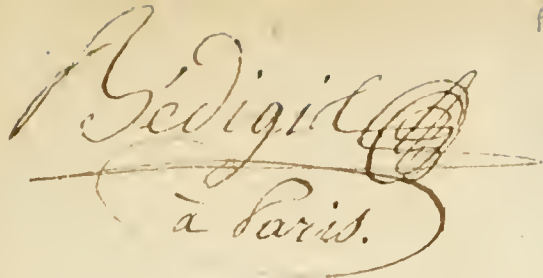 Bédigis
à Paris.